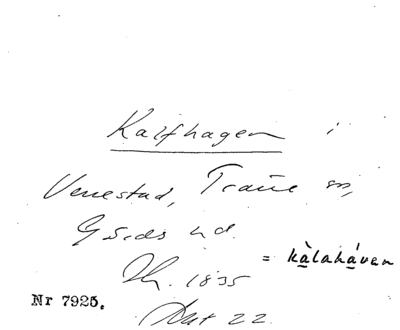 Kalfhagen i
Venestad, Träne sn,
Gärds hd.
1835
= kàlahávan
Nr 7925.
Akt 22